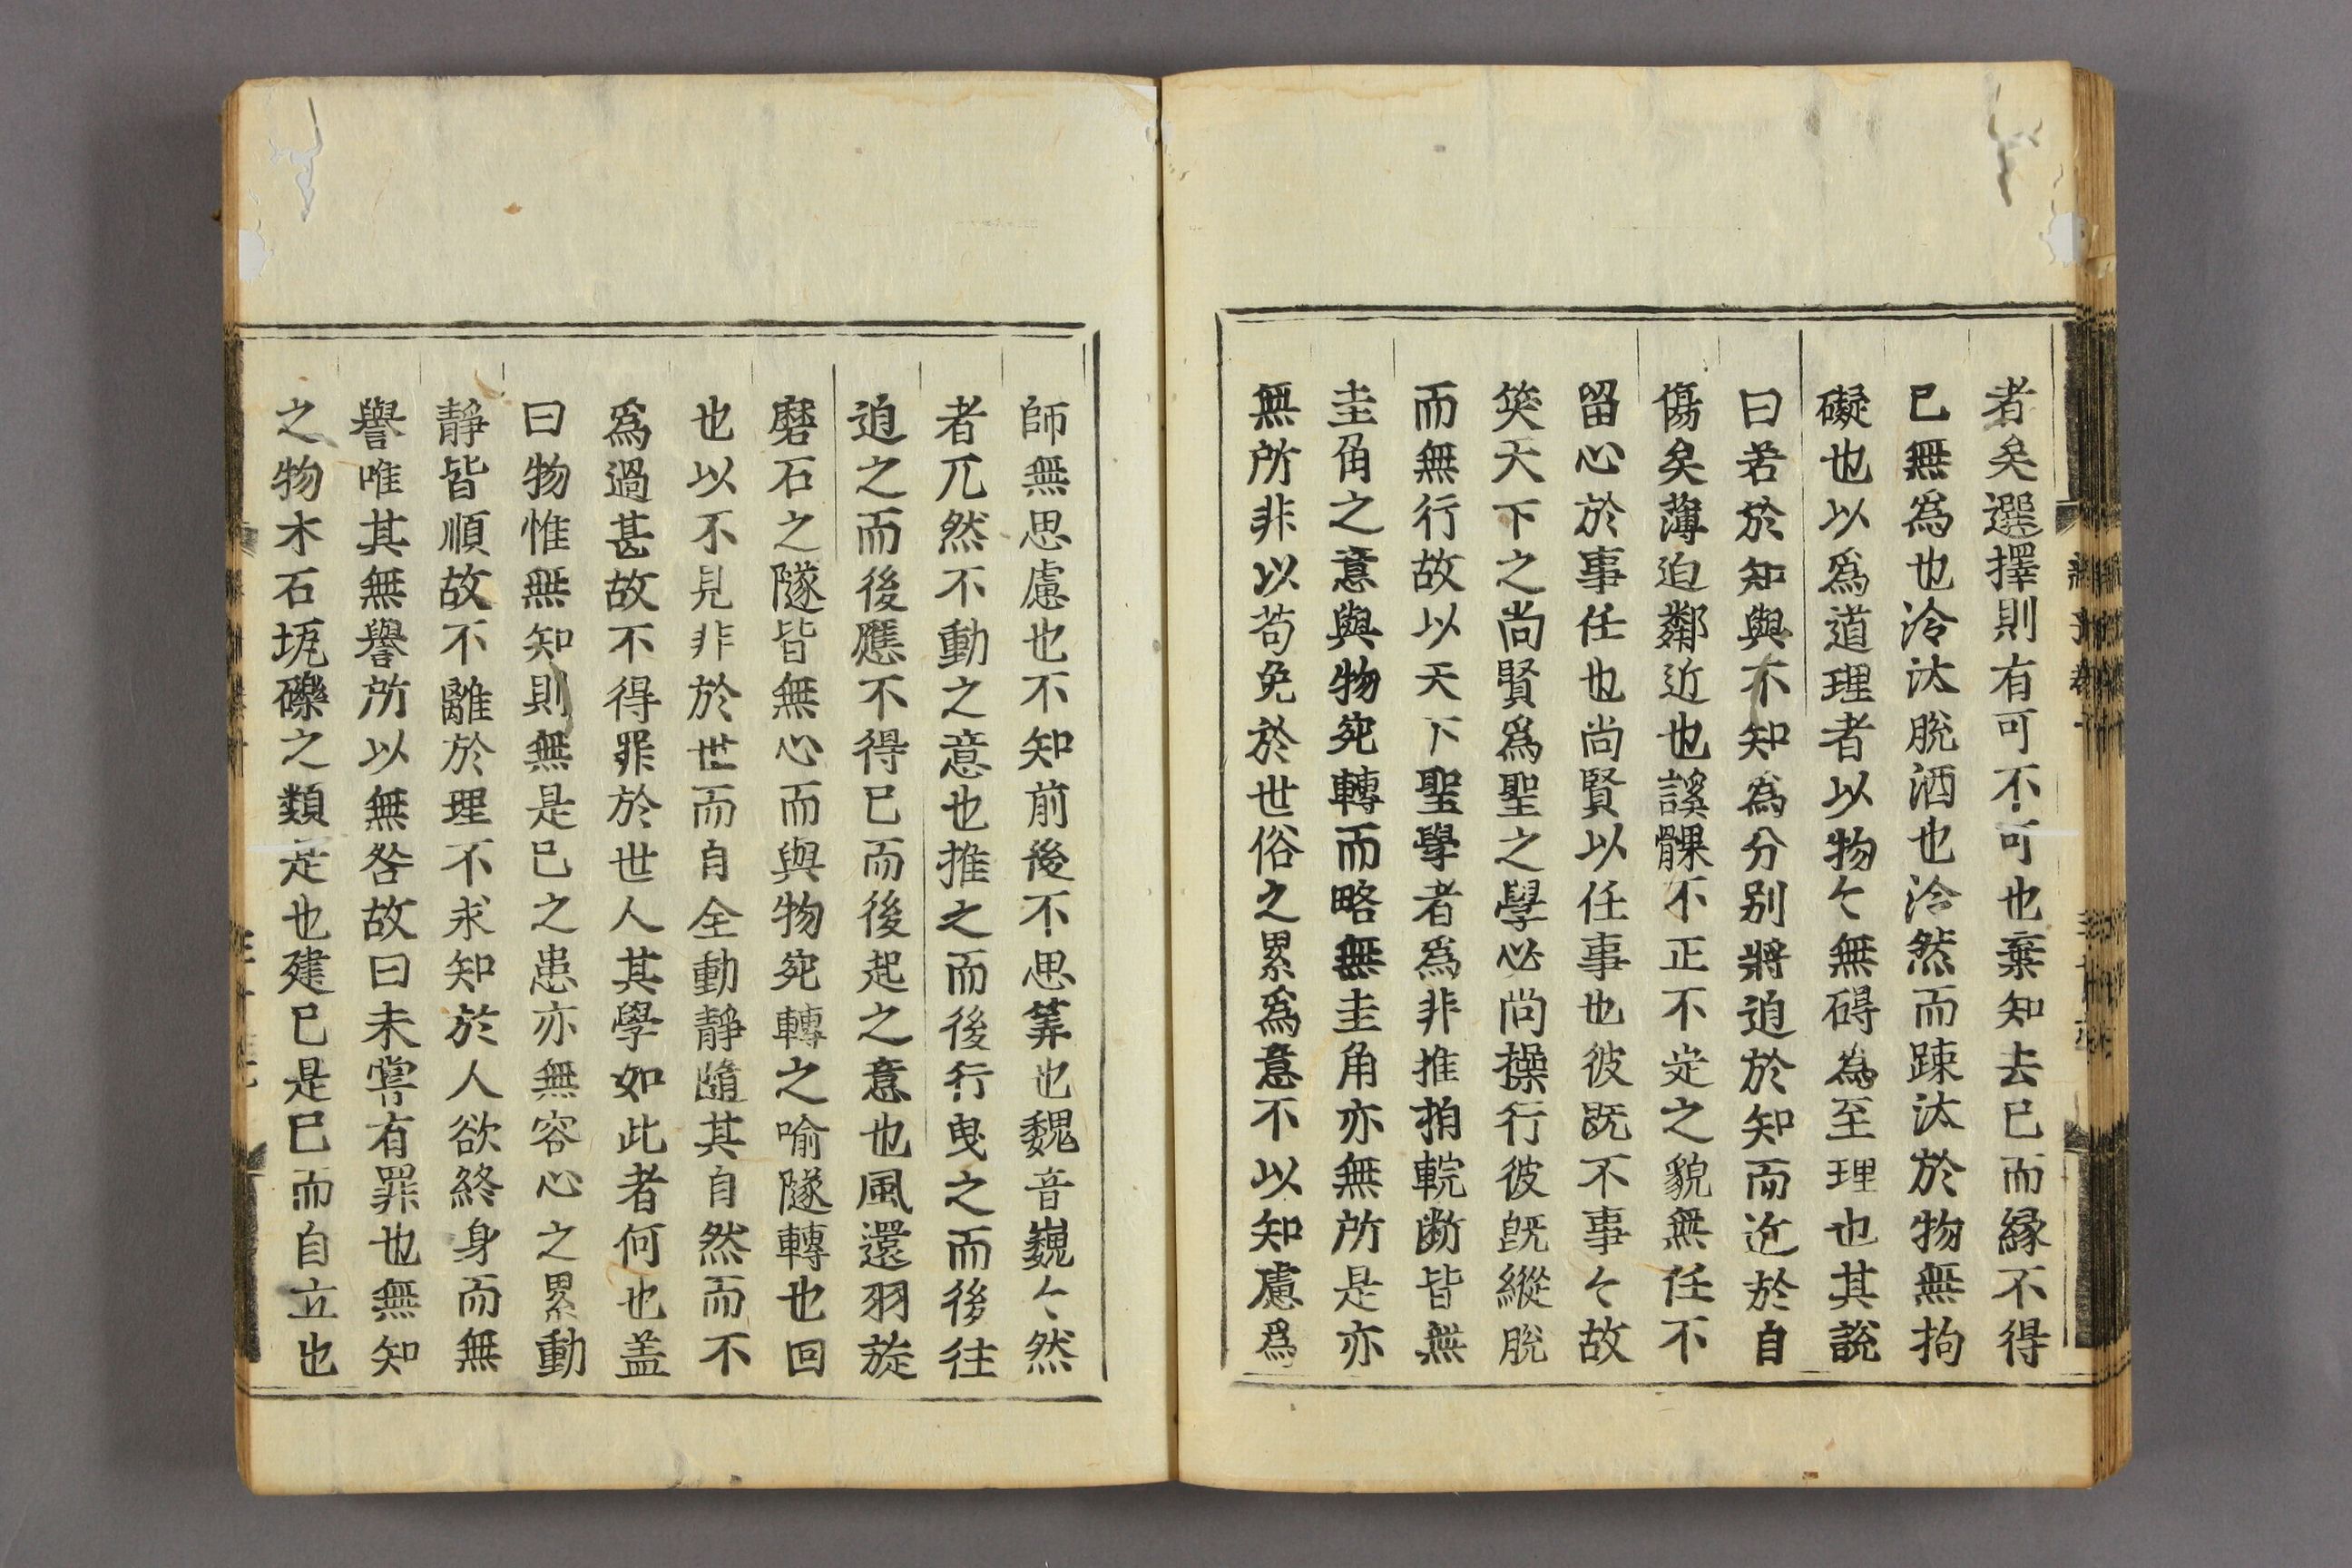 者矣選擇則有可不可也棄知去已而緣不得
已無爲也泠汰脫洒也泠然而踈汰於物無拘
礙也以爲道理者以物〻無碍為至理也其說
曰若於知與不知為分别將迫於知而近於自
傷矣薄迫鄰近也謑髁不正不定之貌無任不
留心於事任也尚賢以任事也彼既不事〻故
笑天下之尚賢爲聖之學必尚操行彼旣縱脫
而無行故以天下聖學者爲非推拍輐断皆無
圭角之意與物宛轉而略無圭角亦無所是亦
無所非以苟免於世俗之累爲意不以知慮爲
師無思慮也不知前後不思筭也魏音巍〻然
者兀然不動之意也推之而後行曳之而後往
迫之而後應不得已而後起之意也風還羽旋
磨石之隧皆無心而與物宛轉之喻隧轉也回
也以不見非於世而自全動靜隨其自然而不
爲過甚故不得罪於世人其學如此者何也盖
曰物惟無知則無是已之患亦無容心之累動
靜皆順故不離於理不求知於人欲終身而無
譽唯其無譽所以無咎故曰未嘗有罪也無知
之物木石坭礫之類是也建已是已而自立也